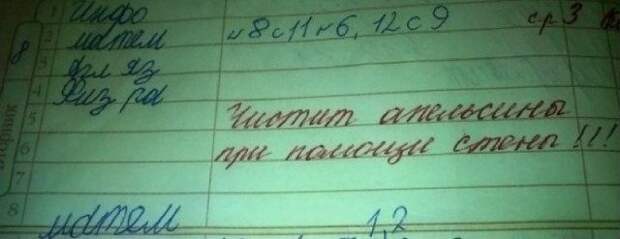 8
вторник
1 Инфо
2 матем н8 с11 н6, 12 с9 ср 3
3
4 Физ ра
5 Чистит апельсины
6 при помощи стены!!!
7
8
матем 1,2